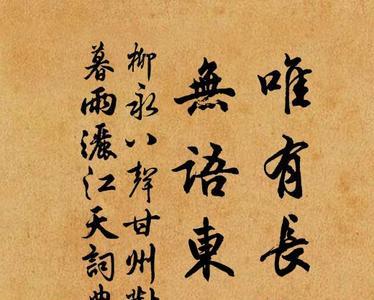 唯有長
無語東
柳永八聲甘州對
暮雨灑江天詞典